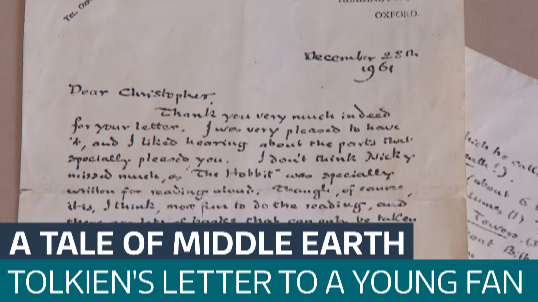 TEL. OX
HEADINGTON,
OXFORD.
December 28th
1961
Dear Christopher,
Thank you very much indeed
for your letter. I was very pleased to have
it, and I liked hearing about the parts that
specially pleased you. I don't think Nicky
missed much, as "The Hobbit" was specially
written for reading aloud. Though, of course,
it is, I think, more fun to do the reading, and
hich he calle
about 6
Towers
out B
A TALE OF MIDDLE EARTH
TOLKIEN'S LETTER TO A YOUNG FAN